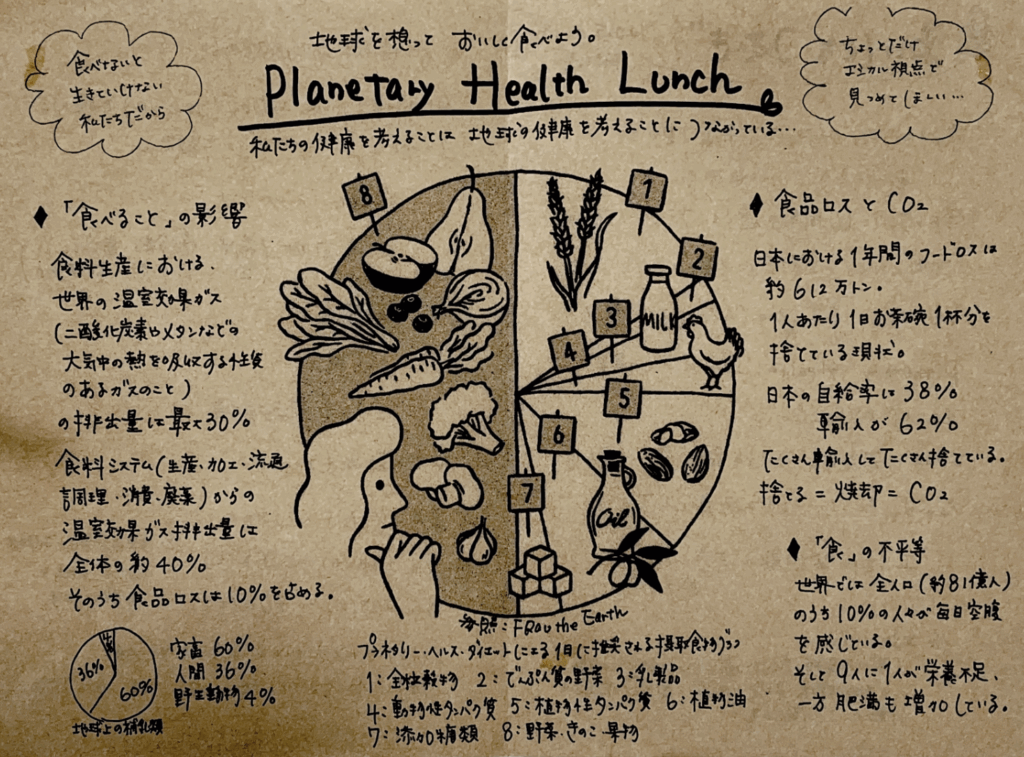 地球を想って おいしく食べよう。
Planetary Health Lunch
私たちの健康を考えることは 地球の健康を考えることにつながっている…
食べないと
生きていけない
私たちだから
ちょっとだけ
エシカル視点で
見つめてほしい…
◆「食べること」の影響
食料生産における、
世界の温室効果ガス
(二酸化炭素やメタンなどの
大気中の熱を吸収する性質
のあるガスのこと)
の排出量は最大30%
食料システム(生産・加工・流通
調理・消費・廃棄)からの
温室効果ガス排出量は
全体の約40%
そのうち食品ロスは10%を占める。
36%
4%
60%
家畜 60%
人間 36%
野生動物 4%
地球上の哺乳類
8
1
2
3
MILK
4
5
6
7
Oil
参照:FRou the Earth
プラネタリー・ヘルス・ダイエットによる1日に推奨される摂取食物プラン
1:全粒穀物 2:でんぷん質の野菜 3:乳製品
4:動物性タンパク質 5:植物性タンパク質 6:植物油
7:添加糖類 8:野菜・きのこ・果物
◆食品ロスとCO2
日本における1年間のフードロスは
約612万トン。
1人あたり1日お茶碗1杯分を
捨てている現状。
日本の自給率は38%
輸入が62%
たくさん輸入してたくさん捨てている。
捨てる=焼却=CO2
◆「食」の不平等
世界では全人口(約81億人)
のうち10%の人々が毎日空腹
を感じている。
そして9人に1人が栄養不足、
一方肥満も増加している。